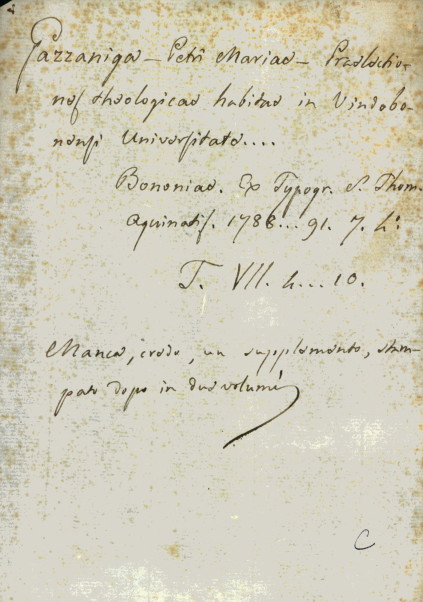 Gazzaniga - Petri Mariae - Praelectio-
nes theologicae habitae in Vindobo-
nensi Universitate....
Bononiae. Ex Typogr. S. Thom.
Aquinatis. 1788... 91. 7. h:
T. VII. h...10.
Manca, credo, un supplemento, stam-
pato dopo in due volumi
C